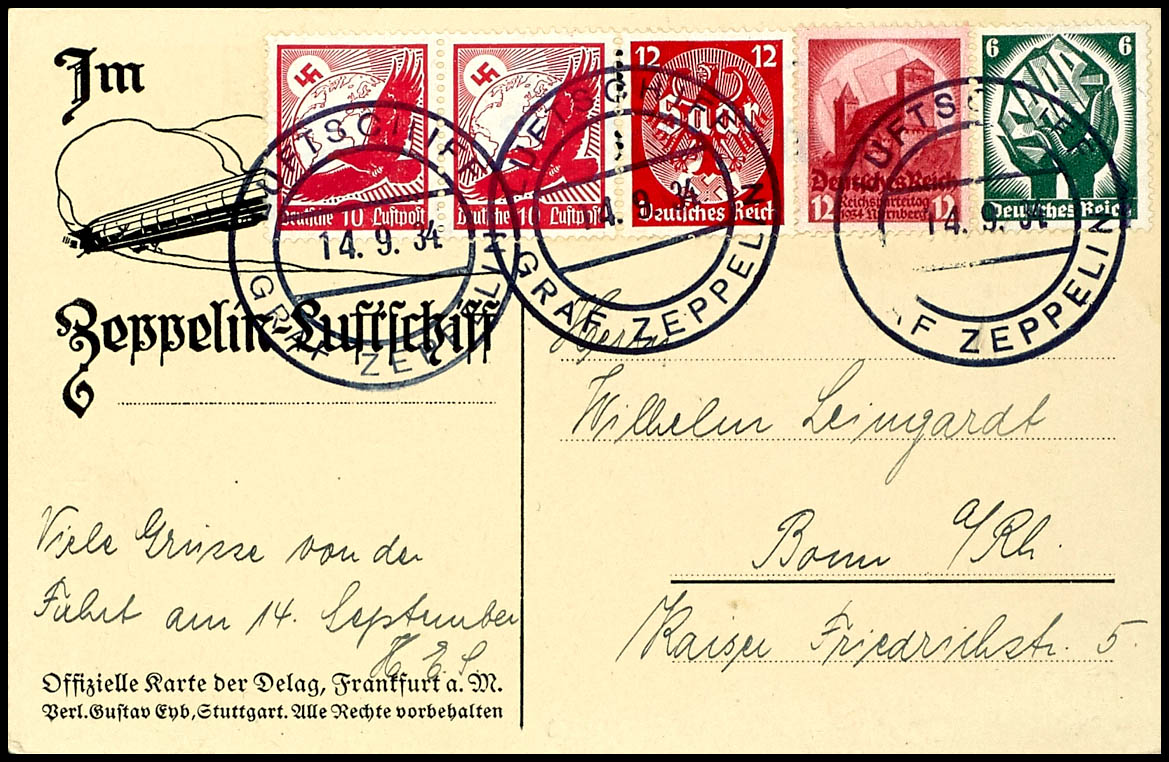 Im
Zeppelin-Luftschiff
Deutsche 10 Luftpost
Deutsche 10 Luftpost
12 12
Saar
Deutsches Reich
Deutsches Reich
12 Reichsparteitag 12
1934 Nürnberg
6 6
SAAR
Deutsches Reich
LUFTSCHIFF
14.9.34
GRAF ZEPPELIN
LUFTSCHIFF
14.9.34
GRAF ZEPPELIN
LUFTSCH
14.9.34
AF ZEPPELIN
Wilhelm Leimgardt
Bonn a/Rh.
Kaiser Friedrichstr. 5.
Viele Grüsse von der
Fahrt am 14. September
H. E. S.
Offizielle Karte der Delag, Frankfurt a. M.
Verl. Gustav Eyb, Stuttgart. Alle Rechte vorbehalten